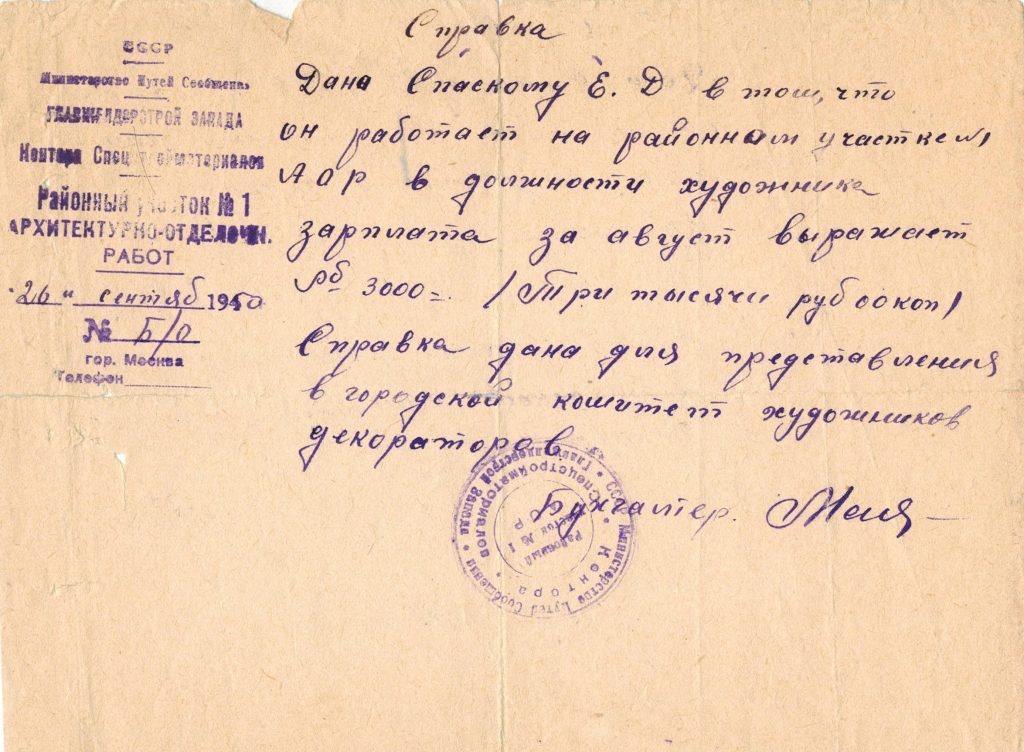 Справка
СССР
Министерство Путей Сообщения
ГЛАВЖЕЛДОРСТРОЙ ЗАПАДА
Контора Спецстройматериалов
Районный участок № 1
АРХИТЕКТУРНО-ОТДЕЛОЧН.
РАБОТ
"26" сентяб 1950
№ Б/о
гор. Москва
Телефон
Дана Спаскому Е. Д в том, что
он работает на районном участке №1
ААР в должности художника
зарплата за август выражает
Рб 3000= /Три тысячи руб 00 коп/
Справка дана для представления
в городской комитет художников
декораторов
Бухгалтер.
СССР • Министерство Путей Сообщения • Главжелдорстрой Запада •
Контора • Спецстройматериалов •
Районный
участок № 1